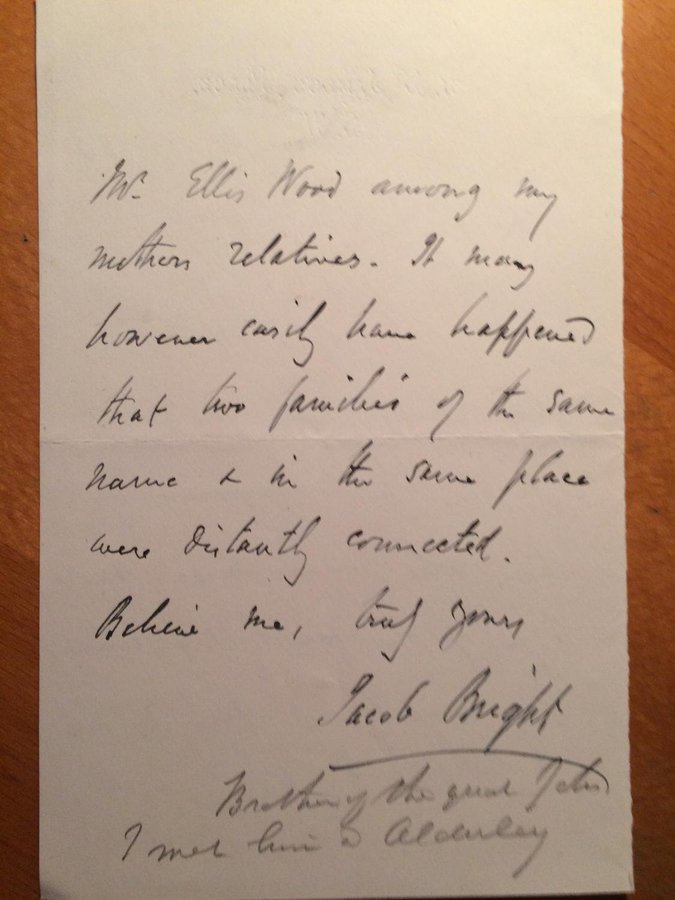 Mr. Ellis Wood among my
mothers relatives. It may
however easily have happened
that two families of the same
name & in the same place
were distantly connected.
Believe me, truly yours
Jacob Bright
Brother of the great John
I met him Alderley